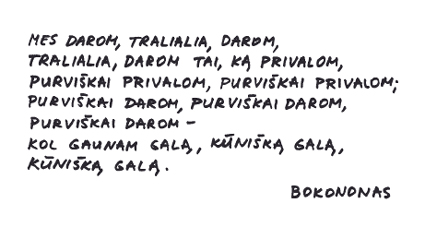 MES DAROM, TRALIALIA, DAROM,
TRALIALIA, DAROM TAI, KĄ PRIVALOM,
PURVIŠKAI PRIVALOM, PURVIŠKAI PRIVALOM;
PURVIŠKAI DAROM, PURVIŠKAI DAROM,
PURVIŠKAI DAROM –
KOL GAUNAM GALĄ, KŪNIŠKĄ GALĄ,
KŪNIŠKĄ GALĄ.
BOKONONAS